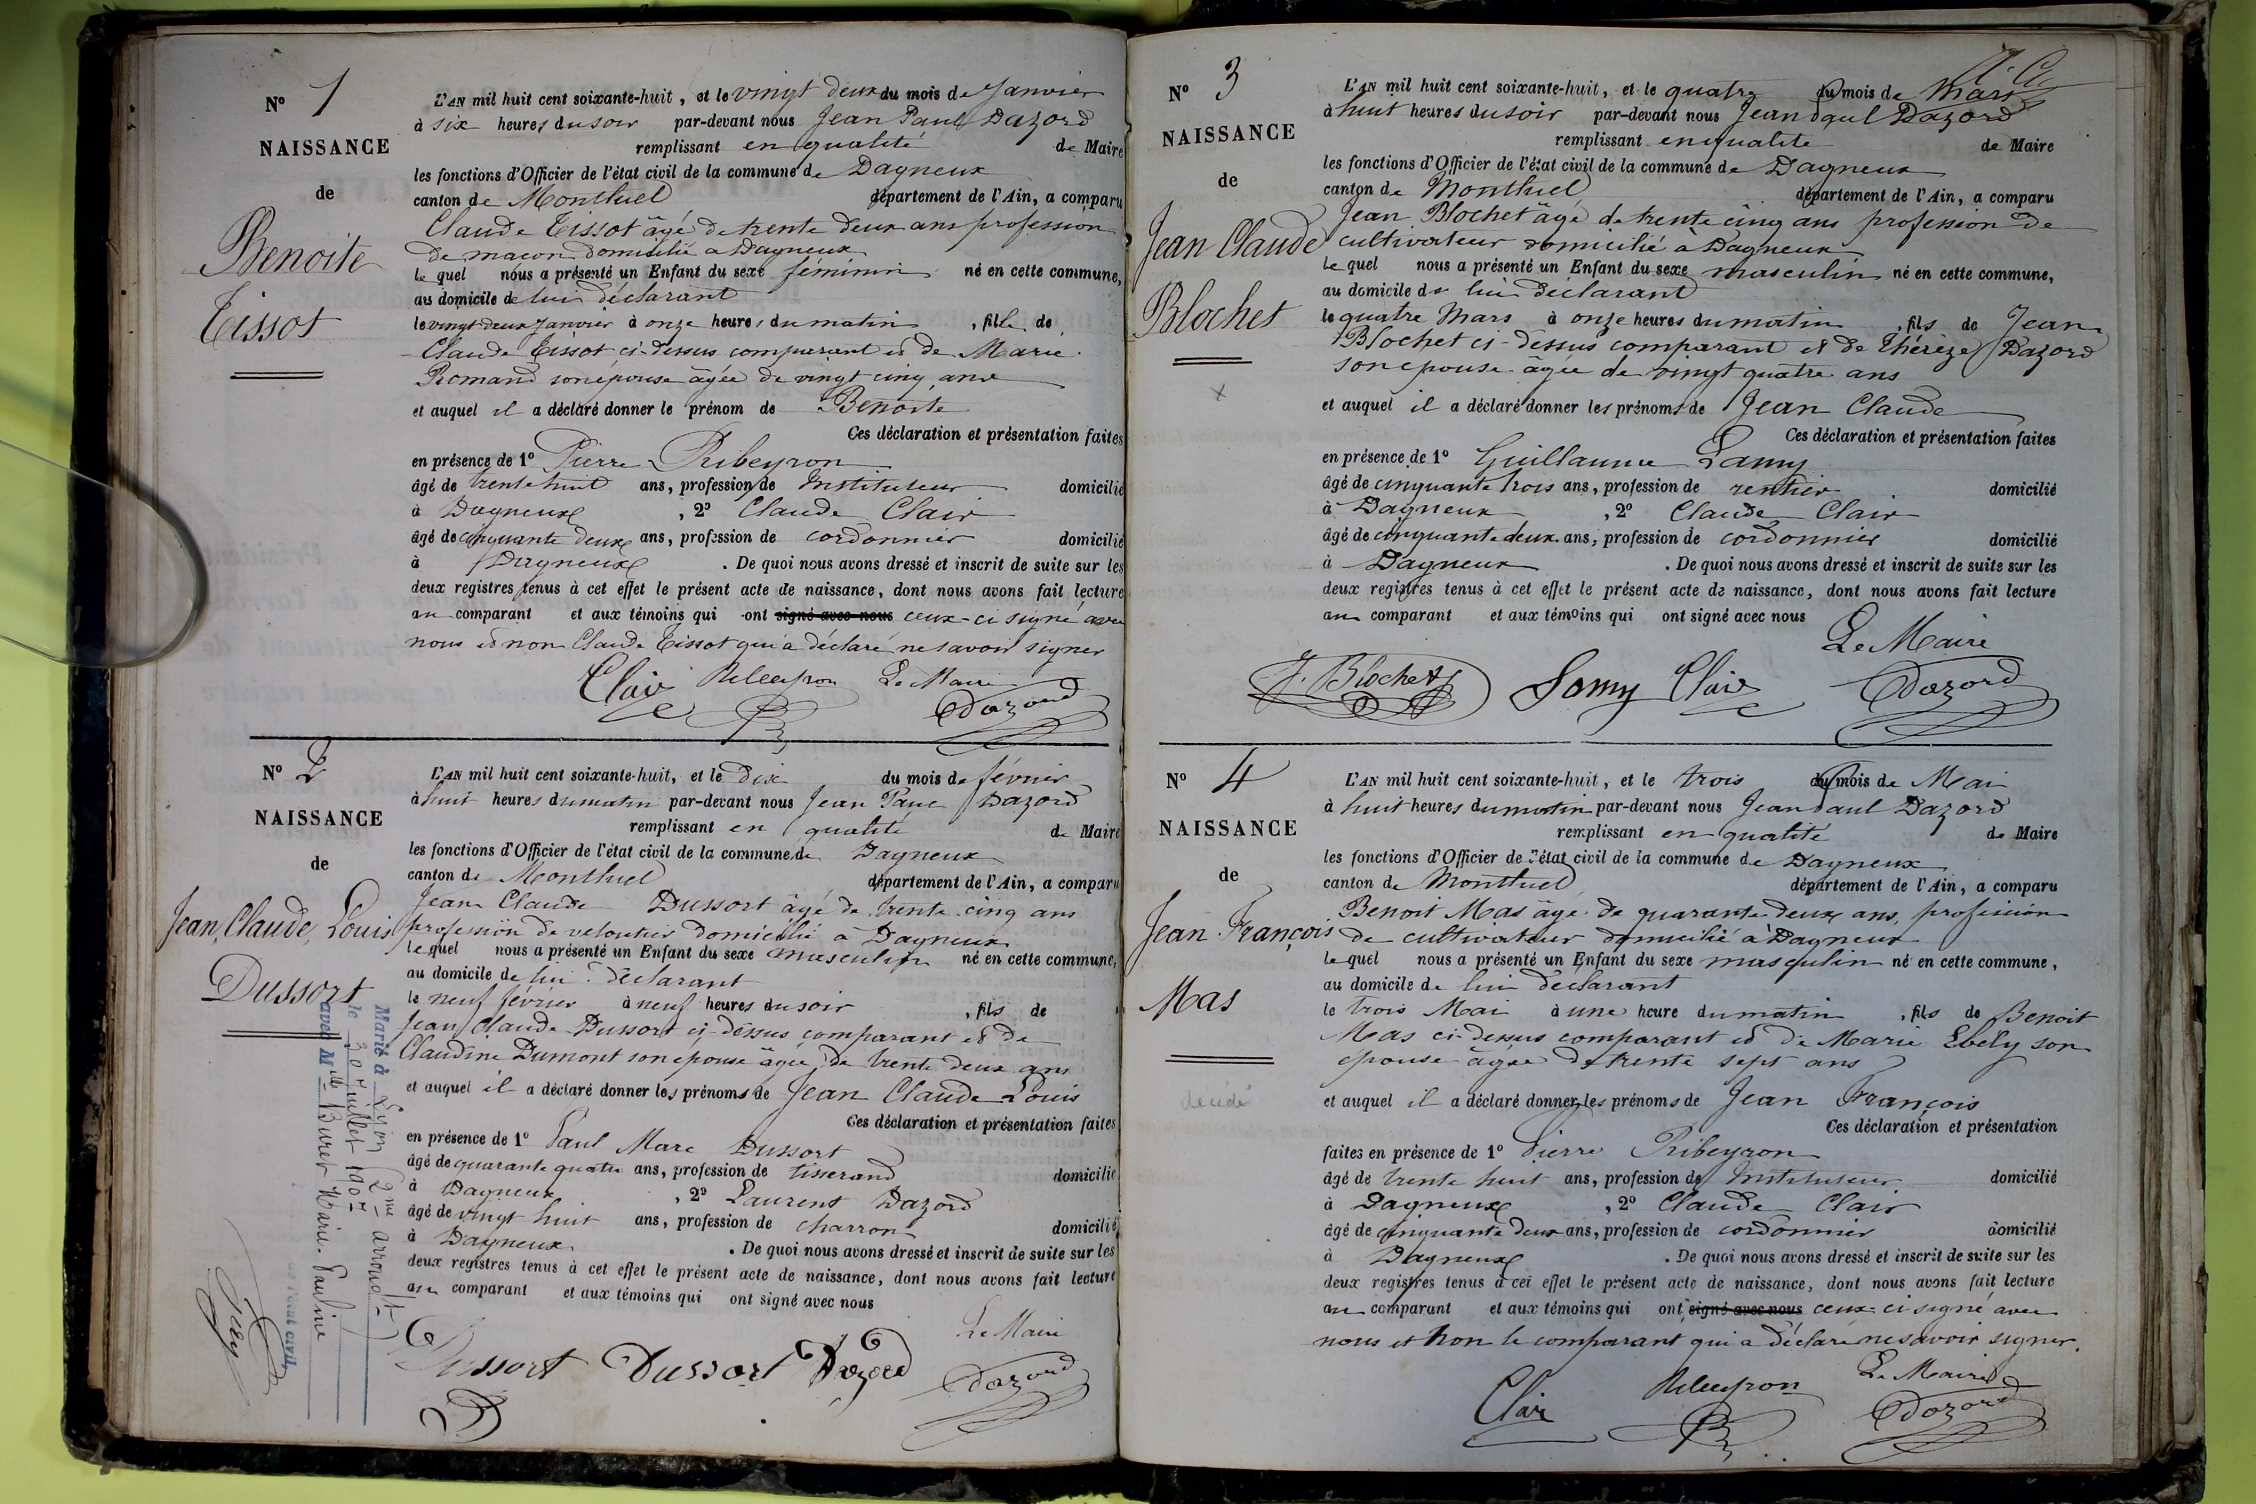 N° 1
NAISSANCE
de
Benoite
Tissot
L'AN mil huit cent soixante-huit, et le vingt deux du mois de Janvier
à six heures du soir par-devant nous Jean Paul Dazord
remplissant en qualité de Maire
les fonctions d'Officier de l'état civil de la commune de Dagneux
canton de Montluel département de l'Ain, a comparu
Claude Tissot âgé de trente deux ans profession
de maçon domicilié a Dagneux
le quel nous a présenté un Enfant du sexe féminin né en cette commune,
au domicile de lui déclarant
le vingt deux Janvier à onze heures du matin, fille de
Claude Tissot ci-dessus comparant et de Marie
Romand son épouse âgée de vingt cinq ans
et auquel il a déclaré donner le prénom de Benoite
Ces déclaration et présentation faites
en présence de 1° Pierre Ribeyron
âgé de trente huit ans, profession de Instituteur domicilié
à Dagneux, 2° Claude Clair
âgé de cinquante deux ans, profession de cordonnier domicilié
à Dagneux. De quoi nous avons dressé et inscrit de suite sur les
deux registres tenus à cet effet le présent acte de naissance, dont nous avons fait lecture
au comparant et aux témoins qui ont signé avec nous ceux-ci signé avec
nous et non Claude Tissot qui a déclaré ne savoir signer
Clair Ribeyron Le Maire
Dazord
N° 2
NAISSANCE
de
Jean, Claude, Louis
Dussort
Marié à Lyon (2me arrondt)
le 30 Juillet 1907
avec Mlle Buret Marie Pauline
L'AN mil huit cent soixante-huit, et le dix du mois de février
à huit heures du matin par-devant nous Jean Paul Dazord
remplissant en qualité de Maire
les fonctions d'Officier de l'état civil de la commune de Dagneux
canton de Montluel département de l'Ain, a comparu
Jean Claude Dussort âgé de trente cinq ans
profession de veloutier domicilié à Dagneux
le quel nous a présenté un Enfant du sexe masculin né en cette commune,
au domicile de lui déclarant
le neuf février à neuf heures du soir, fils de
Jean Claude Dussort ci-dessus comparant et de
Claudine Dumont son épouse âgée de trente deux ans
et auquel il a déclaré donner les prénoms de Jean Claude Louis
Ces déclaration et présentation faites
en présence de 1° Paul Marc Dussort
âgé de quarante quatre ans, profession de tisserand domicilié
à Dagneux, 2° Laurent Dazord
âgé de vingt huit ans, profession de charron domicilié
à Dagneux. De quoi nous avons dressé et inscrit de suite sur les
deux registres tenus à cet effet le présent acte de naissance, dont nous avons fait lecture
au comparant et aux témoins qui ont signé avec nous
Le Maire
Dussort Dussort Dazord Dazord
N° 3
NAISSANCE
de
Jean Claude
Blochet
L'AN mil huit cent soixante-huit, et le quatre du mois de Mars
à huit heures du soir par-devant nous Jean Paul Dazord
remplissant en qualité de Maire
les fonctions d'Officier de l'état civil de la commune de Dagneux
canton de Montluel département de l'Ain, a comparu
Jean Blochet âgé de trente cinq ans profession de
cultivateur domicilié à Dagneux
le quel nous a présenté un Enfant du sexe masculin né en cette commune,
au domicile de lui déclarant
le quatre Mars à onze heures du matin, fils de Jean
Blochet ci-dessus comparant et de Thérèze Dazord
son épouse âgée de vingt quatre ans
et auquel il a déclaré donner les prénoms de Jean Claude
Ces déclaration et présentation faites
en présence de 1° Guillaume Lamy
âgé de cinquante trois ans, profession de rentier domicilié
à Dagneux, 2° Claude Clair
âgé de cinquante deux ans, profession de cordonnier domicilié
à Dagneux. De quoi nous avons dressé et inscrit de suite sur les
deux registres tenus à cet effet le présent acte de naissance, dont nous avons fait lecture
au comparant et aux témoins qui ont signé avec nous
Le Maire
J. Blochet Lamy Clair Dazord
N° 4
NAISSANCE
de
Jean François
Mas
décédé
L'AN mil huit cent soixante-huit, et le trois du mois de Mai
à huit heures du matin par-devant nous Jean Paul Dazord
remplissant en qualité de Maire
les fonctions d'Officier de l'état civil de la commune de Dagneux
canton de Montluel département de l'Ain, a comparu
Benoit Mas âgé de quarante deux ans, profession
de cultivateur domicilié à Dagneux
le quel nous a présenté un Enfant du sexe masculin né en cette commune,
au domicile de lui déclarant
le trois Mai à une heure du matin, fils de Benoit
Mas ci-dessus comparant et de Marie Ebely son
épouse âgée de trente sept ans
et auquel il a déclaré donner les prénoms de Jean François
Ces déclaration et présentation
faites en présence de 1° Pierre Ribeyron
âgé de trente huit ans, profession de Instituteur domicilié
à Dagneux, 2° Claude Clair
âgé de cinquante deux ans, profession de cordonnier domicilié
à Dagneux. De quoi nous avons dressé et inscrit de suite sur les
deux registres tenus à cet effet le présent acte de naissance, dont nous avons fait lecture
au comparant et aux témoins qui ont signé avec nous ceux-ci signé avec
nous et non le comparant qui a déclaré ne savoir signer.
Clair Ribeyron Le Maire
Dazord